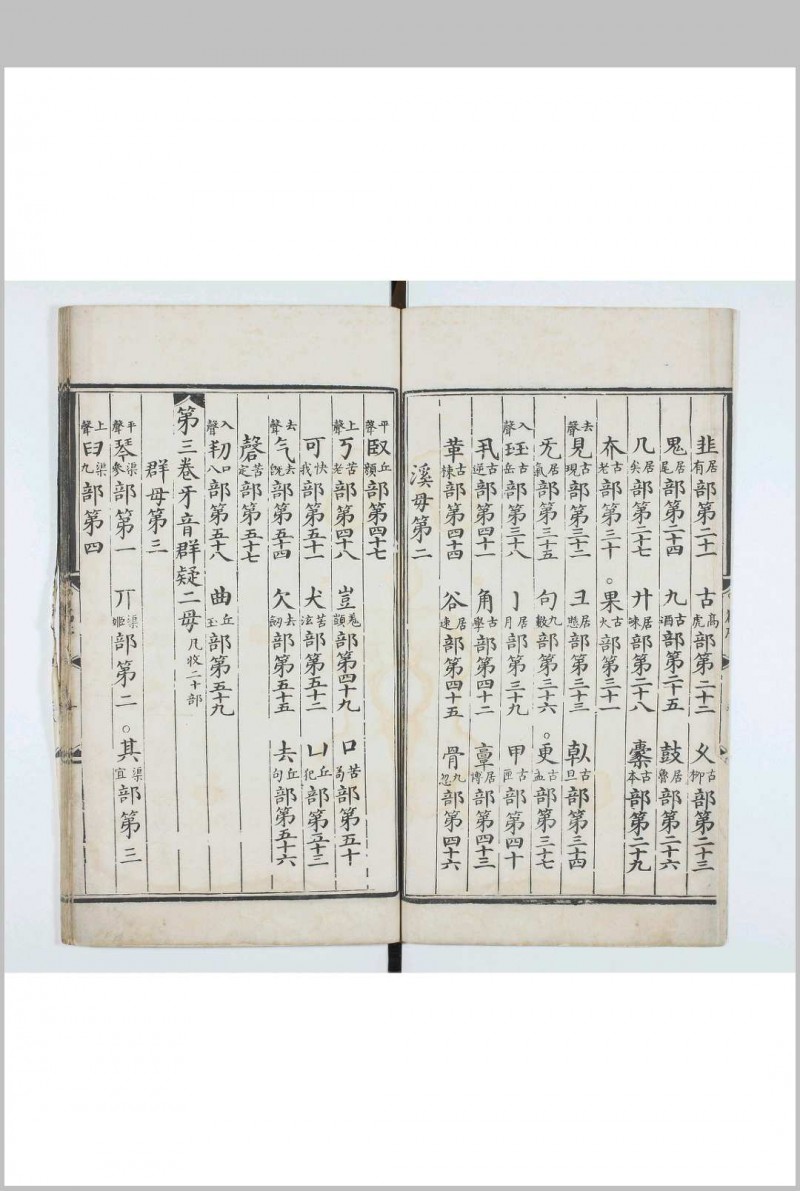 韭居有部第二十一　古高虎部第二十二　乂古柳部第二十三
鬼居尾部第二十四　九古酒部第二十五　鼓居魯部第二十六
几居矣部第二十七　廾居竦部第二十八　橐古本部第二十九
夰古老部第三十　○果古火部第三十一
去聲見古現部第三十二　㔿居部第三十三　倝古旦部第三十四
旡居氣部第三十五　句九部第三十六　○更古孟部第三十七
入聲玨古岳部第三十八　亅居月部第三十九　甲古匣部第四十
丮古逆部第四十一　角古學部第四十二　𩫖居博部第四十三
革古部第四十四　谷居部第四十五　骨九忽部第四十六
溪母第二
平聲臤丘部第四十七
上聲丂苦老部第四十八　豈部第四十九　口苦苟部第五十
可快我部第五十一　犬苦泫部第五十二　凵丘犯部第五十三
去聲气去旣部第五十四　欠去劒部第五十五　去丘句部第五十六
磬苦定部第五十七
入聲㓞口八部第五十八　曲丘玉部第五十九
第三卷牙音群疑二母凡收二十部
群母第三
平聲琴渠參部第一　丌渠姬部第二　○其渠宜部第三
上聲臼渠九部第四